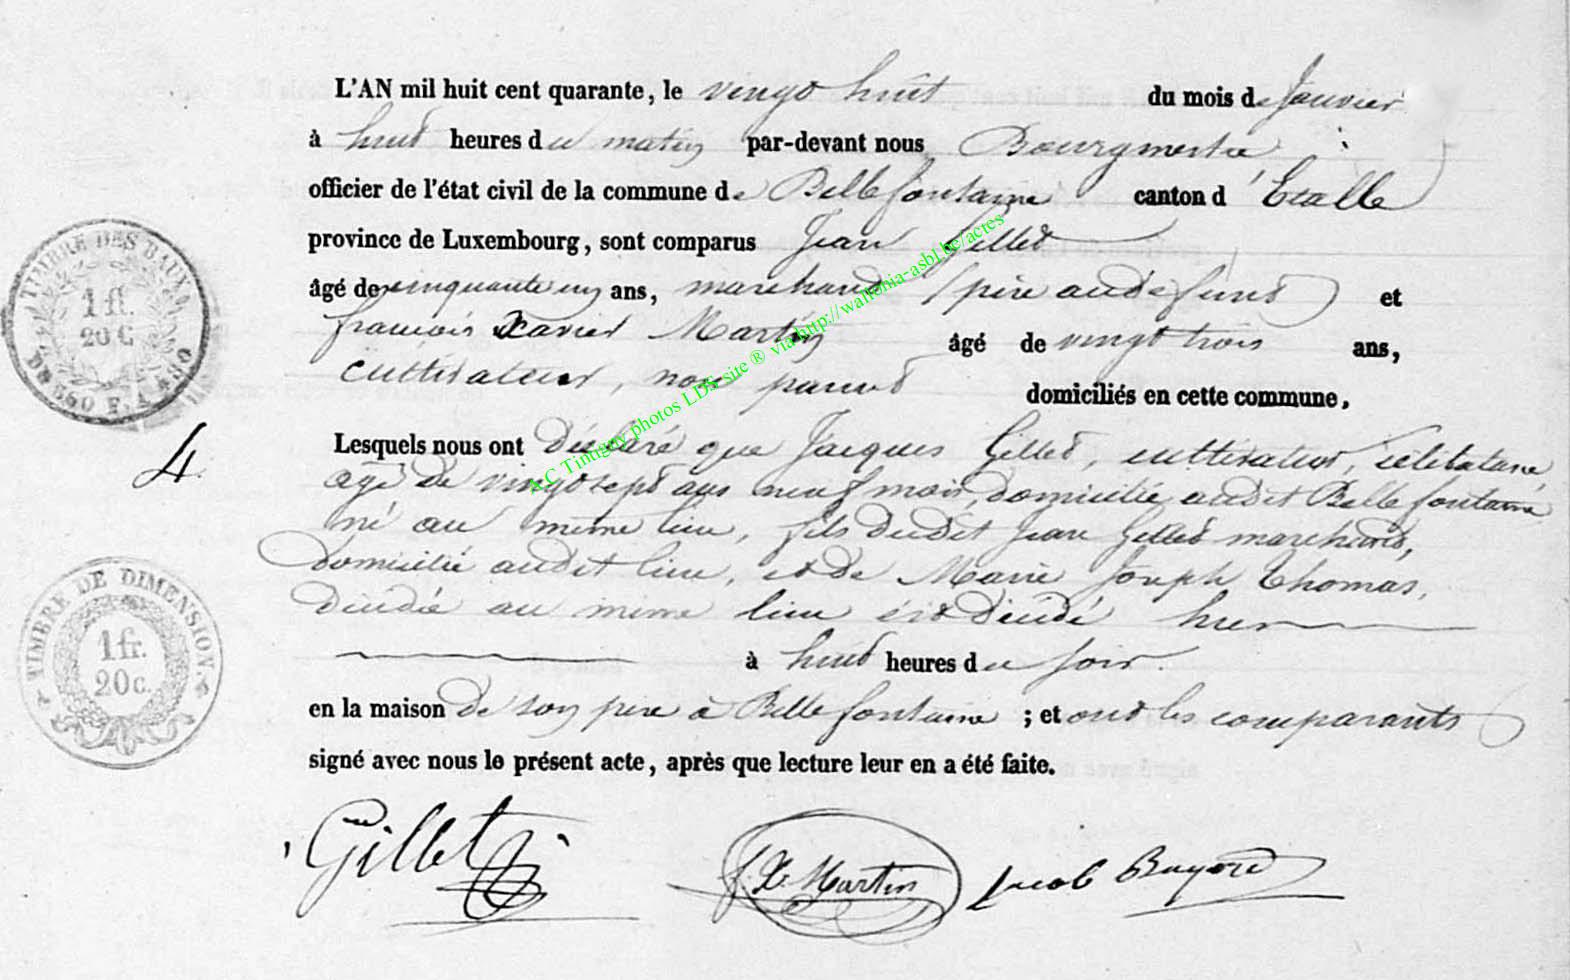 L'AN mil huit cent quarante, le vingt huit du mois de Janvier
à huit heures du matin par-devant nous Bourgmestre
officier de l'état civil de la commune de Bellefontaine canton d'Etalle
province de Luxembourg, sont comparus Jean Gillet
âgé de cinquante un ans, marchand (père au défunt) et
françois Xavier Martin âgé de vingt trois ans,
cultivateur, non parent domiciliés en cette commune,
Lesquels nous ont déclaré que Jacques Gillet, cultivateur, célibataire,
âgé de vingt sept ans neuf mois, domicilié audit Bellefontaine
né au même lieu, fils dudit Jean Gillet marchand,
domicilié audit lieu, et de Marie Joseph Thomas,
décédée au même lieu est décédé hier
à huit heures du soir.
en la maison de son père à Bellefontaine ; et ont les comparants
signé avec nous le présent acte, après que lecture leur en a été faite.
Gillet
f. X. Martin
Jacob
4
TIMBRE DES BAUX A
1 fl.
20 C
TIMBRE DE DIMENSION
1 fr.
20 c.
A.C Tintigny photos LDS site ® via http://wallonia-asbl.be/acres